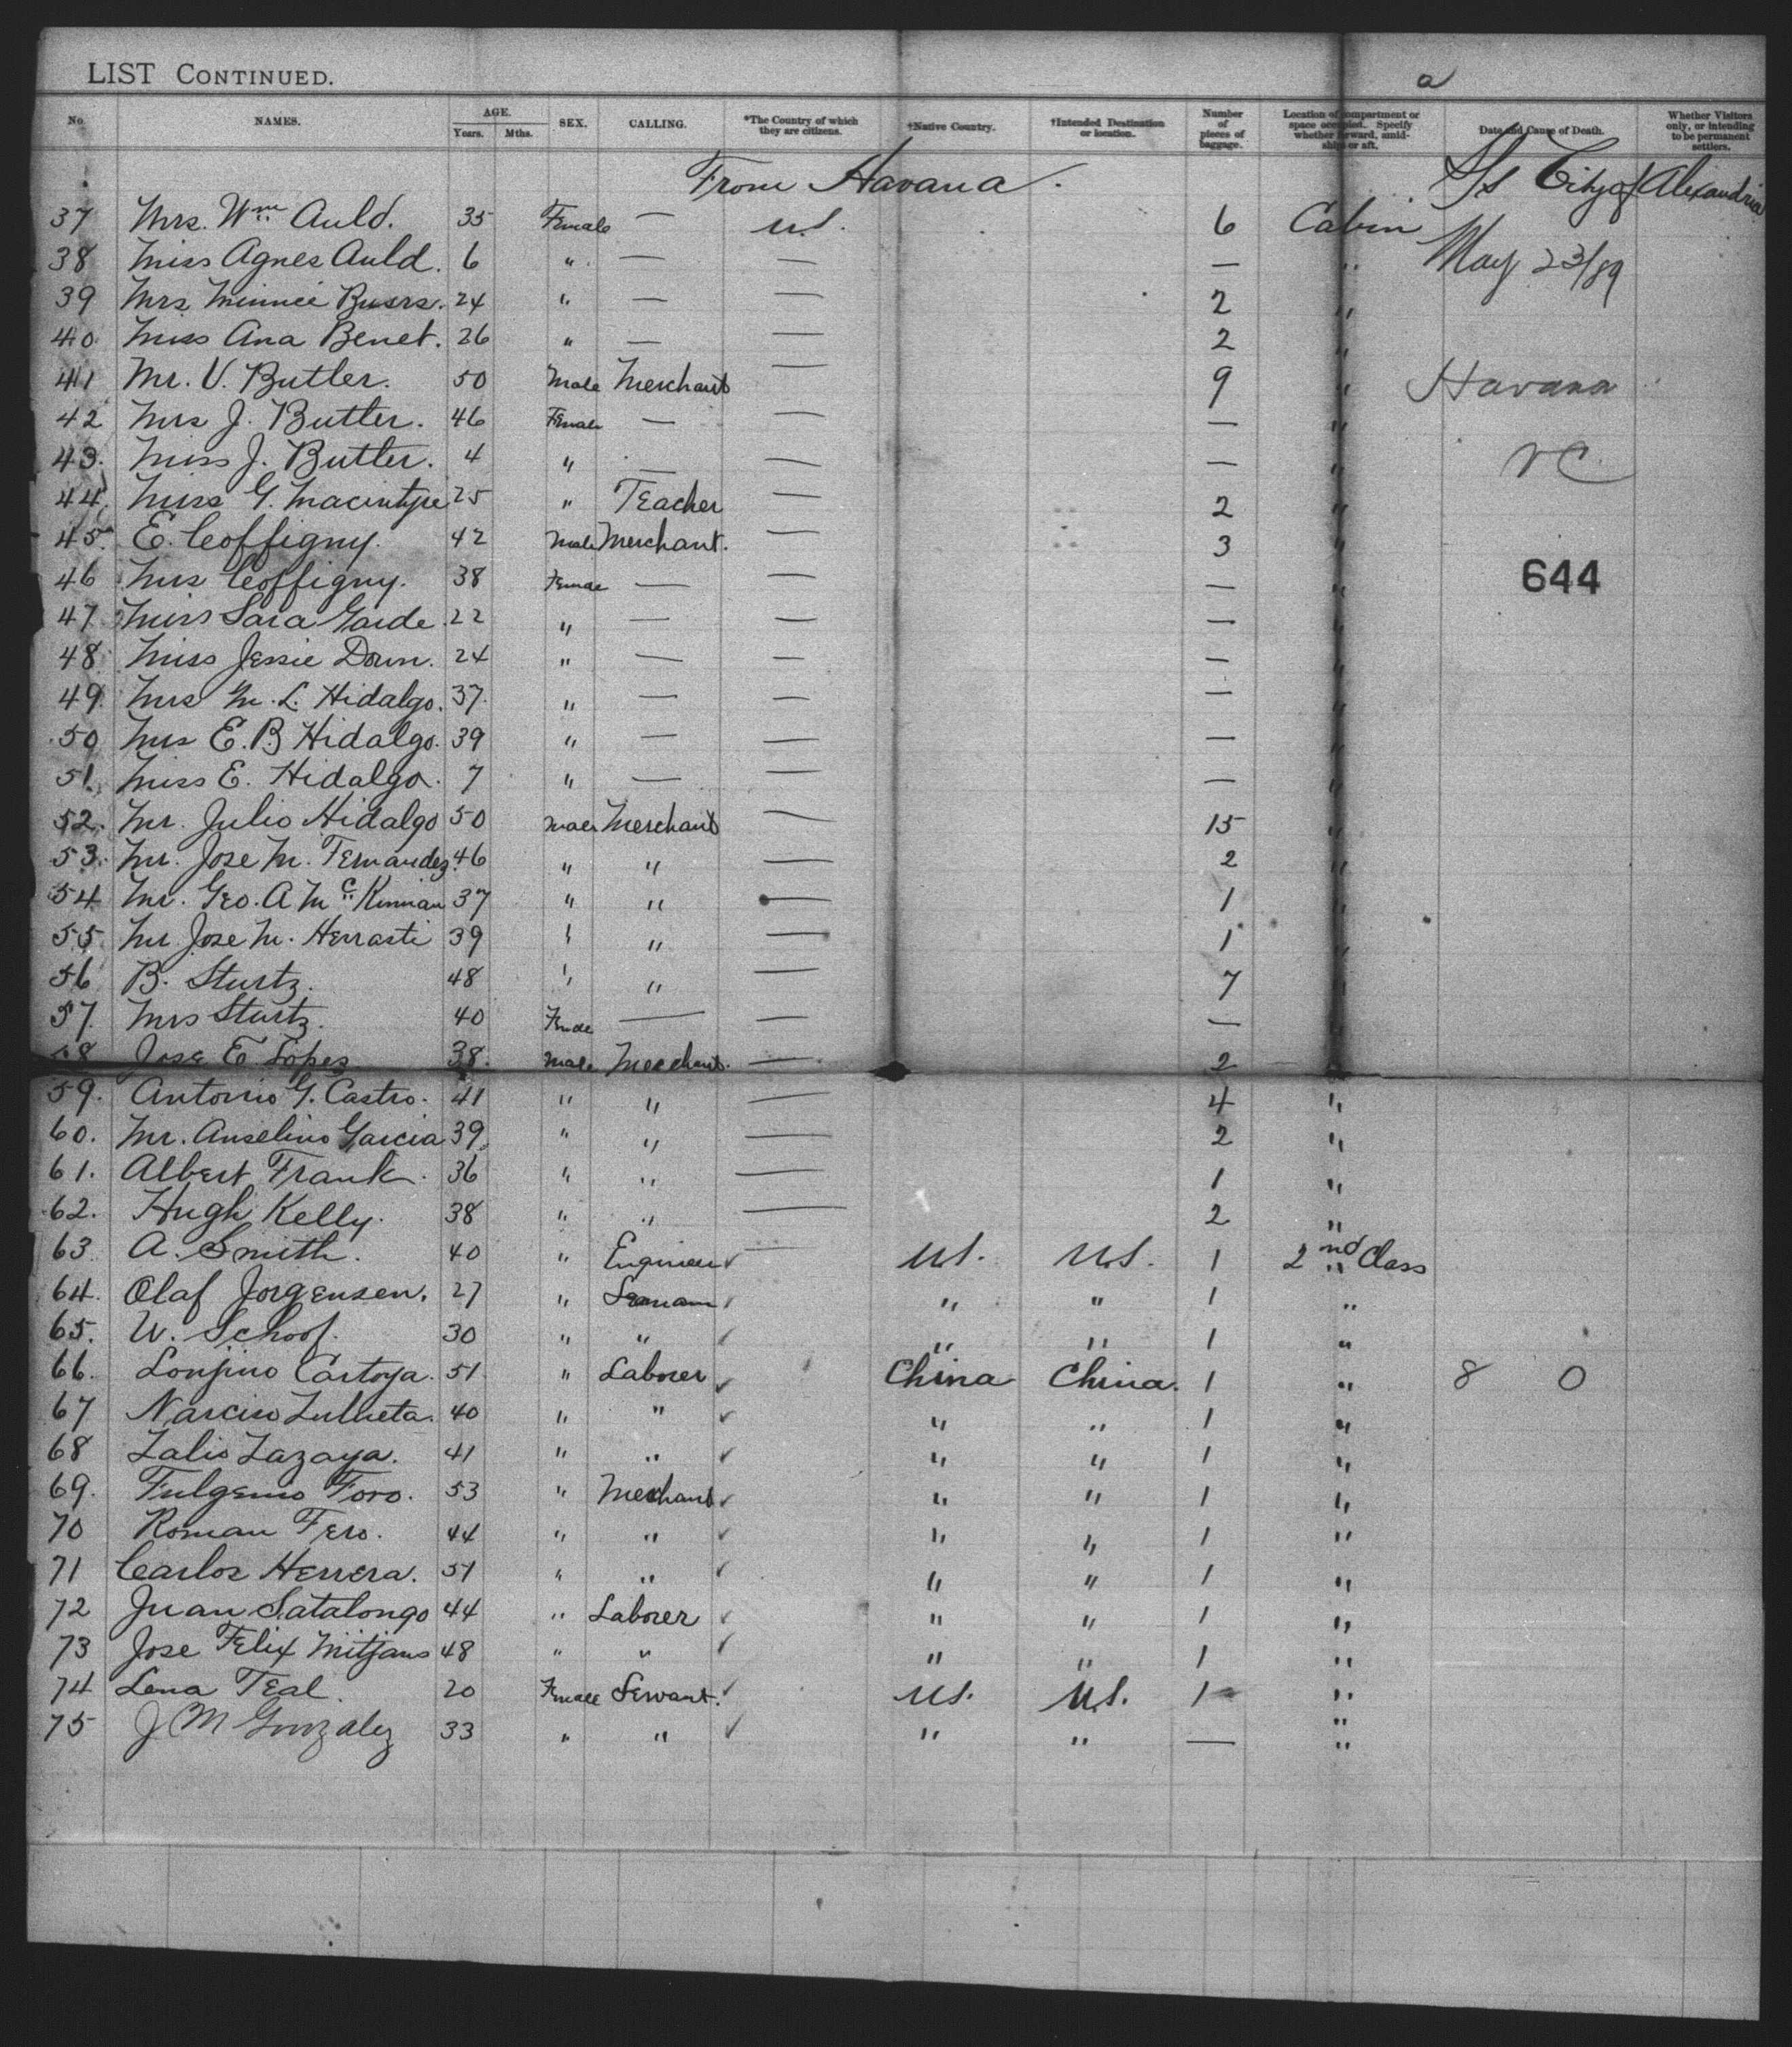 LIST CONTINUED. a
No. NAMES. AGE. Years. Mths. SEX. CALLING. *The Country of which they are citizens. †Native Country. †Intended Destination or location. Number of pieces of baggage. Location of compartment or space occupied. Specify whether forward, amidships or aft. Date and Cause of Death. Whether Visitors only, or intending to be permanent settlers.
From Havana. S/s City of Alexandria
37 Mrs. Wm Auld. 35 Female — U.S. 6 Cabin
38 Miss Agnes Auld. 6 " — — — " May 23/89
39 Mrs. Minnie 24 " — — 2 "
40 Miss Ana Benet. 26 " — — 2 "
41 Mr. V. Butler. 50 Male Merchant — 9 " Havana
42 Mrs J. Butler. 46 Female — — — "
43. Miss J. Butler. 4 " — — — "
44. Miss G. Macintyre 25 " Teacher — 2 "
45. E. Coffigny. 42 Male Merchant. — 3 "
46 Mrs Coffigny. 38 Female — — — " 644
47 Miss Sara Garde 22 " — — — "
48 Miss Jessie 24 " — — — "
49. Mrs M. L. Hidalgo. 37. " — — — "
50 Mrs E. B Hidalgo. 39 " — — — "
51. Miss E. Hidalgo. 7 " — — — "
52. Mr. Julio Hidalgo 50 Male Merchant — 15 "
53. Mr. Jose M. Fernandez. 46 " " — 2 "
54 Mr. Geo. A Mc Kinnian 37 " " — 1 "
55 Mr Jose M. Herrasti 39 " " — 1 "
56 B. Sturtz. 48 " " — 7 "
57. Mrs Sturtz. 40 Female — — — "
58 Jose E Lopez 38. Male Merchant. — 2 "
59. Antonio G. Castro. 41 " " — 4 "
60. Mr. Anselino Garcia 39 " " — 2 "
61. Albert Frank. 36 " " — 1 "
62. Hugh Kelly. 38 " " — 2 "
63 A. Smith. 40 " Engineer ✓ — U.S. U.S. 1 2nd " Class
64. Olaf Jorgensen. 27 " Seaman ✓ " " 1 "
65. W. Schoof. 30 " " ✓ " " 1 "
66. Lonjino Cartoya. 51. " Laborer ✓ China China. 1 " 8 0
67 Narciso Zulueta. 40 " " ✓ " " 1 "
68 Lalio Lazaya. 41 " " ✓ " " 1 "
69. Fulgenio Foro. 53 " Merchant ✓ " " 1 "
70 Roman Fero. 44 " " ✓ " " 1 "
71 Carlos Herrera. 51 " " ✓ " " 1 "
72 Juan Satalongo 44 " Laborer ✓ " " 1 "
73 Jose Felix Mitjans 48 " " ✓ " " 1 "
74 Lena Teal. 20 Female Servant. ✓ U.S. U.S. 1 "
75 J M Gonzalez 33 " " ✓ " " — "